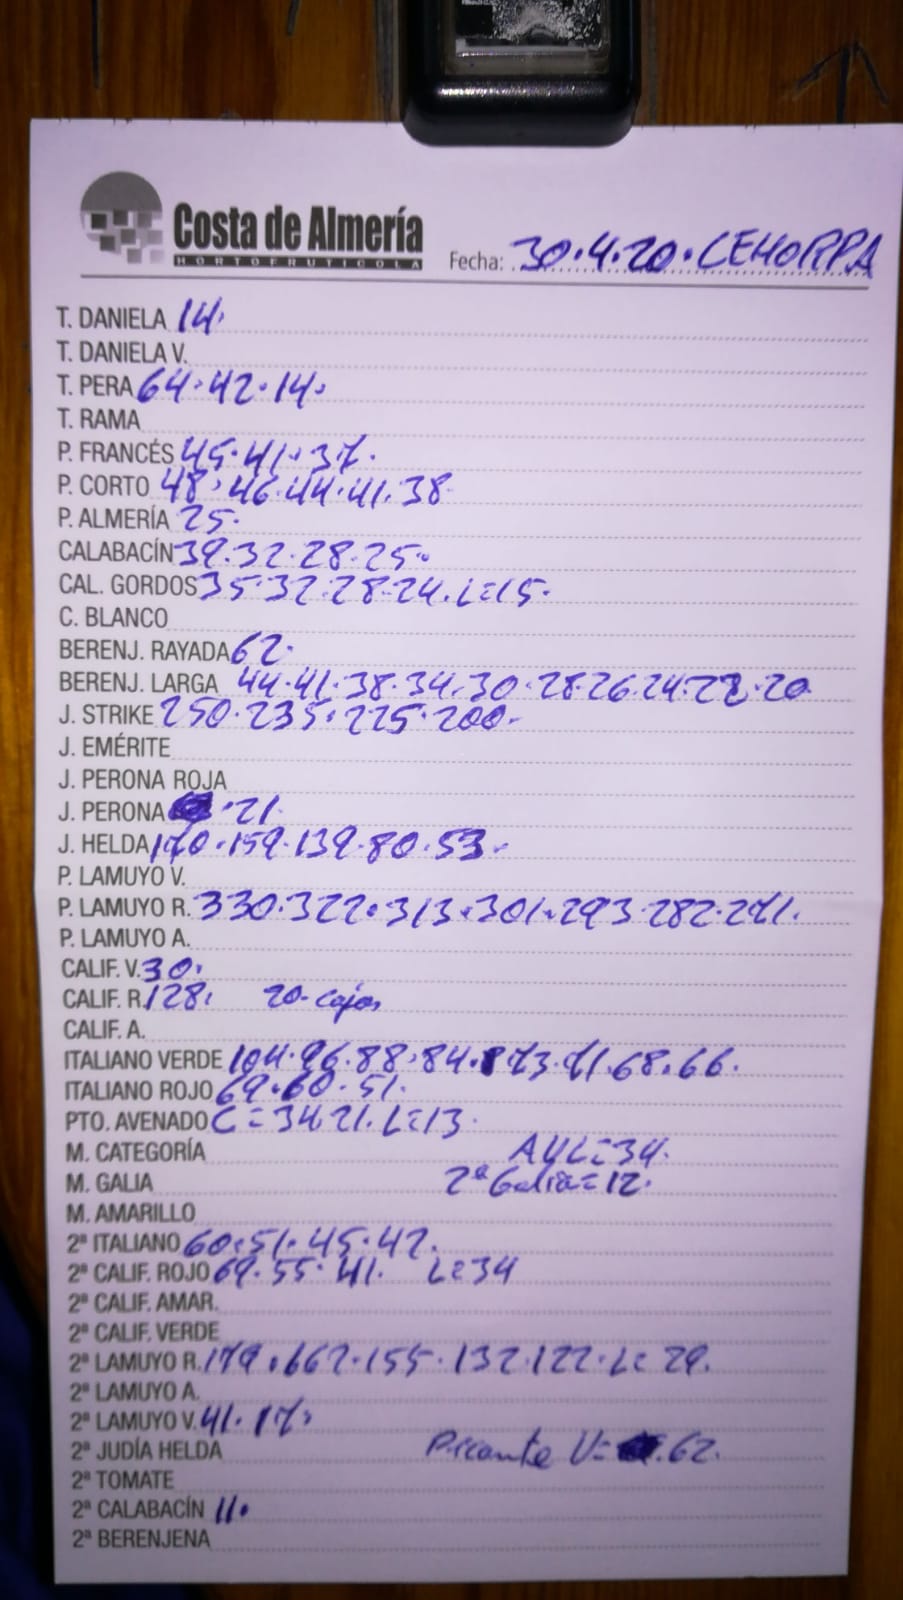 Costa de Almería
HORTOFRUTICOLA
Fecha: 30.4.20. CEHORPA
T. DANIELA 14.
T. DANIELA V.
T. PERA 64.42.14.
T. RAMA
P. FRANCÉS 45.41.37.
P. CORTO 48.46.44.41.38
P. ALMERÍA 25.
CALABACÍN 39.32.28.25.
CAL. GORDOS 35.32.28.24. L=15.
C. BLANCO
BERENJ. RAYADA 62.
BERENJ. LARGA 44.41.38.34.30.28.26.24.22.20
J. STRIKE 250.235.225.200.
J. EMÉRITE
J. PERONA ROJA
J. PERONA .21.
J. HELDA 170.159.139.80.53.
P. LAMUYO V.
P. LAMUYO R. 330.322.313.301.293.282.271.
P. LAMUYO A.
CALIF. V. 30.
CALIF. R. 128. 20-cajas
CALIF. A.
ITALIANO VERDE 104.96.88.84.73.71.68.66.
ITALIANO ROJO 69.60.51.
PTO. AVENADO C=34.21. L=13.
M. CATEGORÍA =34.
M. GALIA 2ª Galia=12.
M. AMARILLO
2ª ITALIANO 60.51.45.42.
2ª CALIF. ROJO 69.55.41. L=34
2ª CALIF. AMAR.
2ª CALIF. VERDE
2ª LAMUYO R. 179.662.155.132.122. L=29.
2ª LAMUYO A.
2ª LAMUYO V. 41.17.
2ª JUDÍA HELDA Picante V= .62.
2ª TOMATE
2ª CALABACÍN 11.
2ª BERENJENA